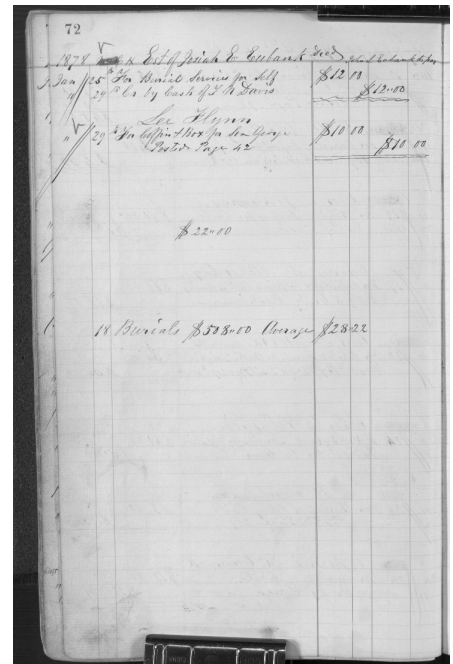 72
1878 Est of Josiah E Eubank Dec'd
Jan 25 For Burial Services for Self $12 00
" 29 Cr by Cash of T N Davis $12=00
Lee Flynn
" 29 For Coffin & Box for Son George $10 00
Posted Page 42 $10 00
$22=00
18 Burials $508=00 Average $28=22